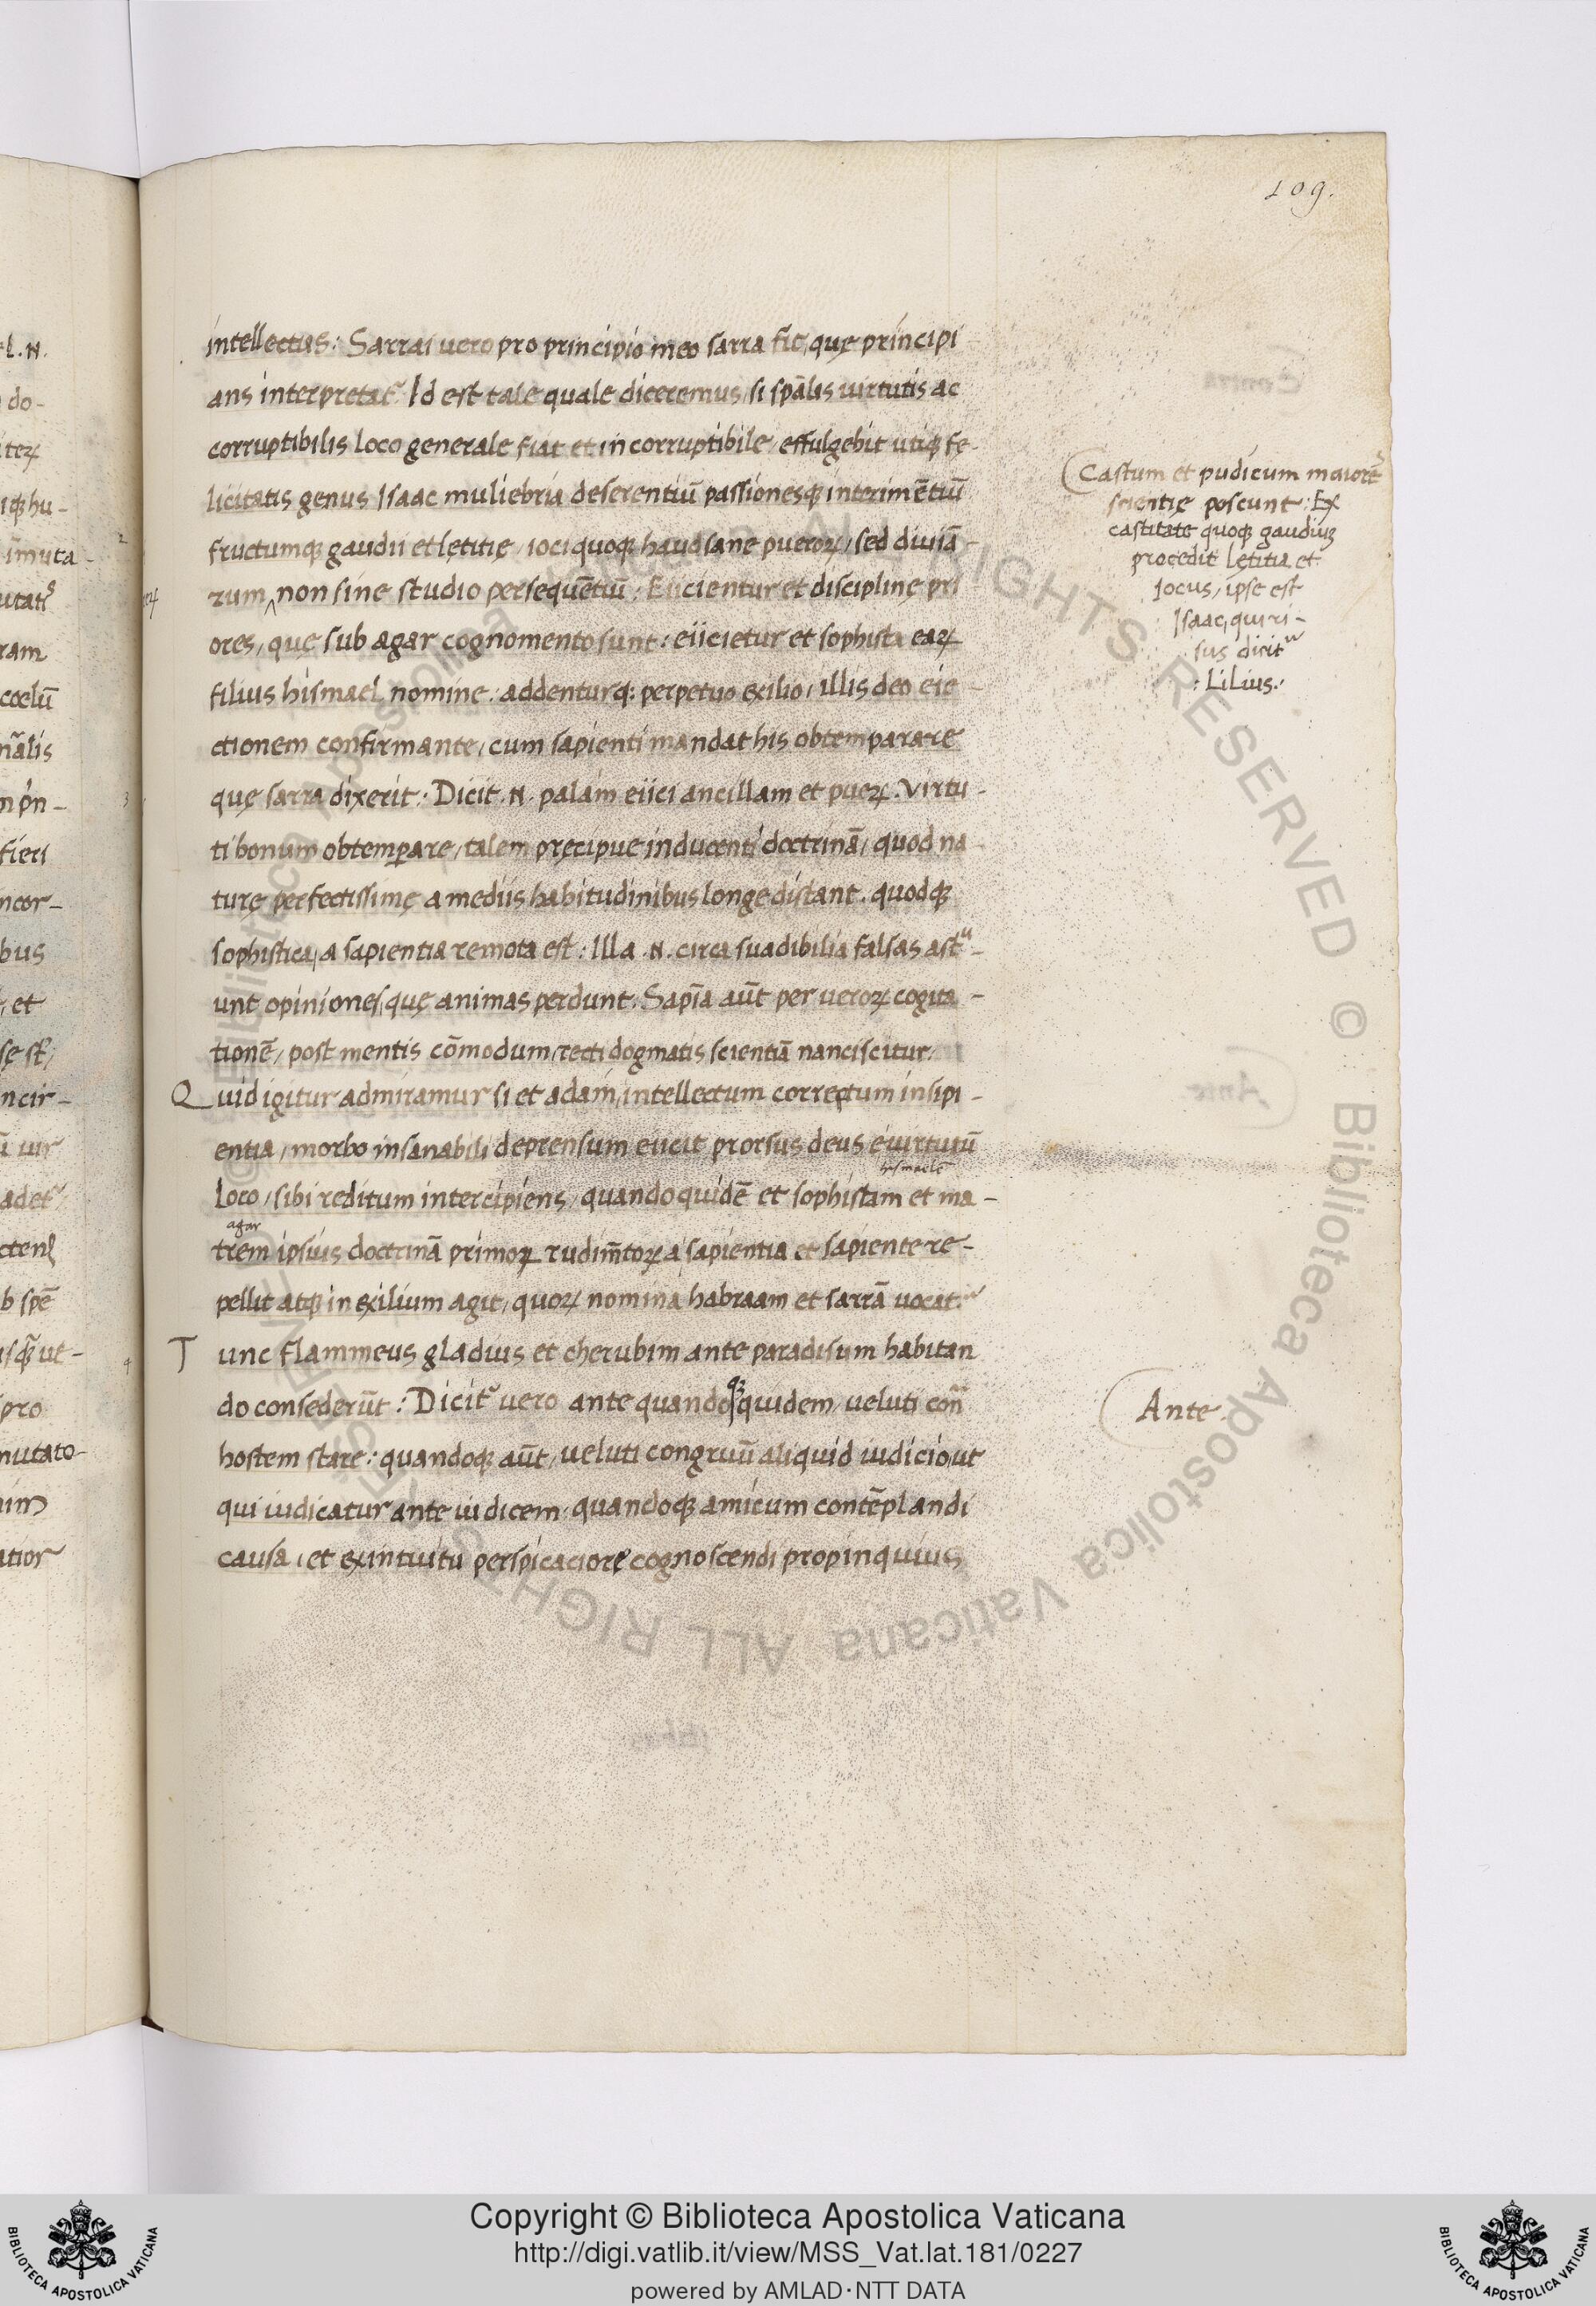 109.
intellectus: Sarrai uero pro principio meo sarra fit, quę principi
ans interpretat᷑. Id est tale quale diceremus, si sp̄alis uirtutis ac
corruptibilis loco generale fiat et incorruptibile, effulgebit utiqꝫ fe-
licitatis genus Isaac muliebria deserentiū passionesqꝫ interimētiū
fructumqꝫ gaudii et lętitię, ioci quoqꝫ haud sane pueroꝝ, sed diuiā-
rum ‸ non sine studio persequētiū: Eiicientur et disciplinę pri
ores, quę sub agar cognomento sunt: eiicietur et sophista eaꝝ
filius hismael nomine: addenturqꝫ perpetuo exilio, illis deo eie-
ctionem confirmante, cum sapienti mandat his obtemparare
quę sarra dixerit: Dicit .N. palam eiici ancillam et pueꝝ. Virtu-
ti bonum obtemꝑare, talem pręcipue inducenti doctrinā, quod na-
turę perfectissimę a mediis habitudinibus longe distant. quodqꝫ
sophistica, a sapientia remota est: Illa .N. circa suadibilia falsas astu-
unt opiniones, quę animas perdunt. Sapīa aūt per ueroꝝ cogita-
tionē, post mentis cōmodum, recti dogmatis scientiā nanciscitur.
Quid igitur admiramur si et adam, intellectum correptum insipi-
entia, morbo insanabili deprensum eiicit prorsus deus e uirtutū
hismaelē
loco, sibi reditum intercipiens, quandoquidē et sophistam et ma-
agar
trem ipsius doctrinā primoꝝ rudim̄toꝝ a sapientia et sapiente re-
pellit atqꝫ in exilium agit, quoꝝ nomina habraam et sarrā uocat.
Tunc flammeus gladius et cherubim ante paradisum habitan
do consederūt: Dicit᷑ uero ante quandoqꝫ quidem, ueluti con̄
hostem stare: quandoqꝫ aūt, ueluti congruū aliquid iudicio, ut
qui iudicatur ante iudicem, quandoqꝫ amicum contēplandi
causa, et ex intuitu perspicaciore cognoscendi propinquius
Castum et pudicum maiorē
scientię poscunt: Ex
castitate quoqꝫ gaudiuꝫ
procedit Lętitia et
Jocus, ipse est
Isaac, qui ri-
sus dicit᷑
: Lilius:
Ante.
Copyright © Biblioteca Apostolica Vaticana
http://digi.vatlib.it/view/MSS_Vat.lat.181/0227
powered by AMLAD·NTT DATA
BIBLIOTECA APOSTOLICA VATICANA
BIBLIOTECA APOSTOLICA VATICANA